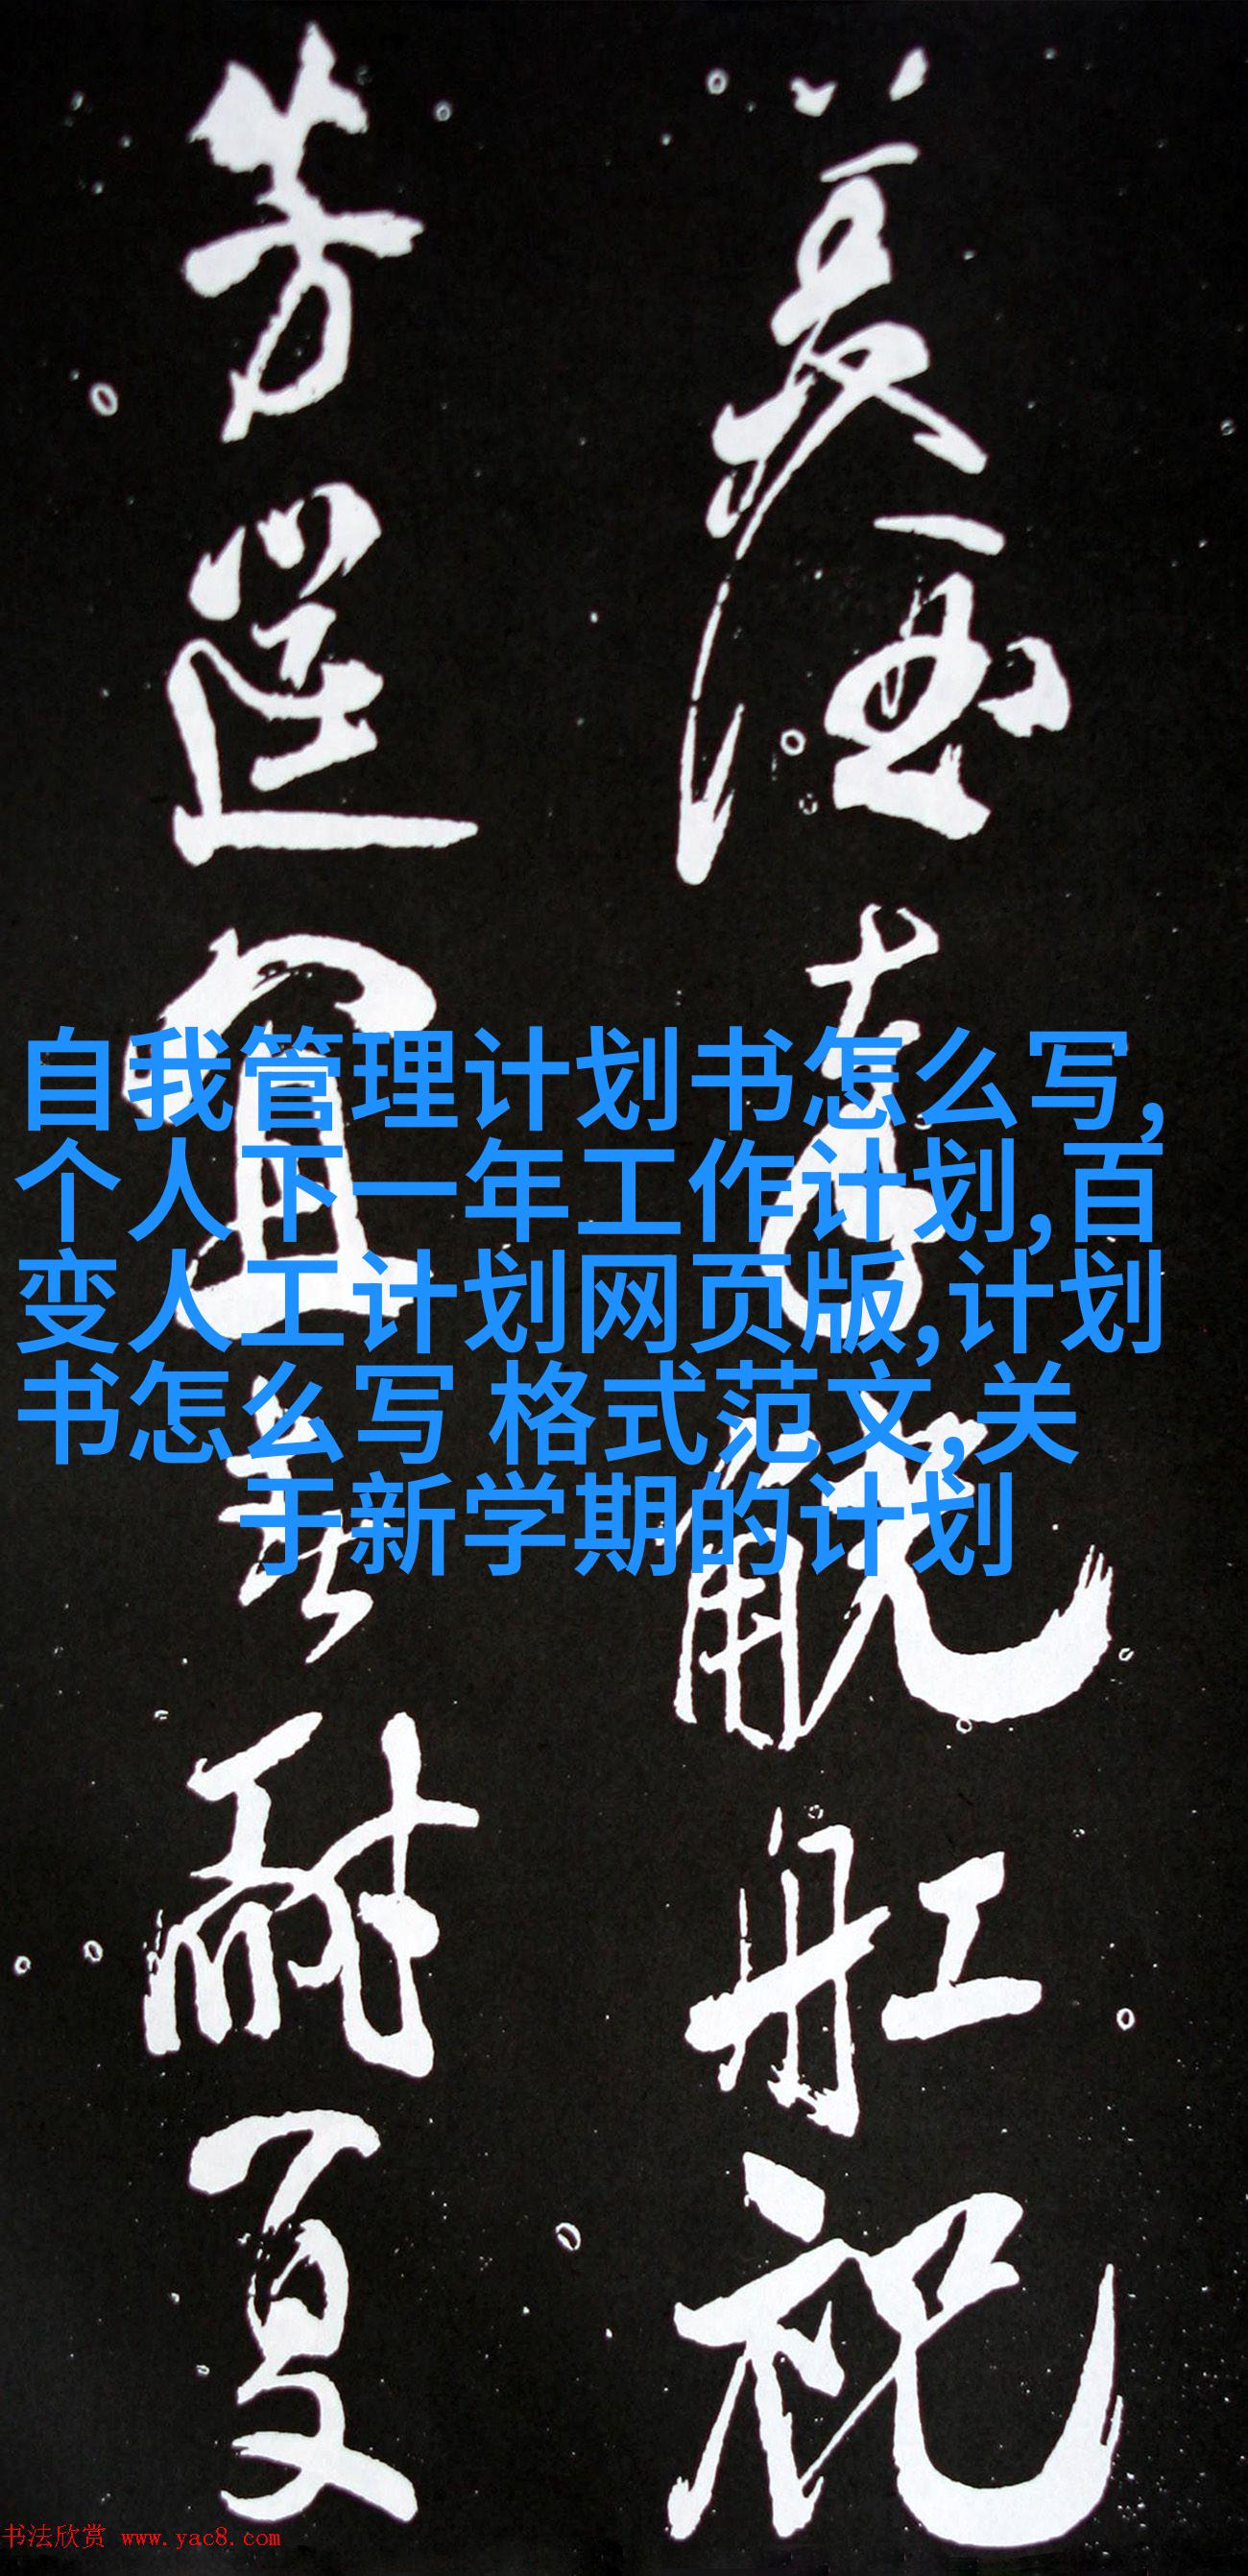 舡祝
芳筵宜
耐夏
自我管理计划书怎么写,
个人下一年工作计划,百
变人工计划网页版,计划
书怎么写 格式范文,关
于新学期的计划
书法欣赏 www.yac8.com